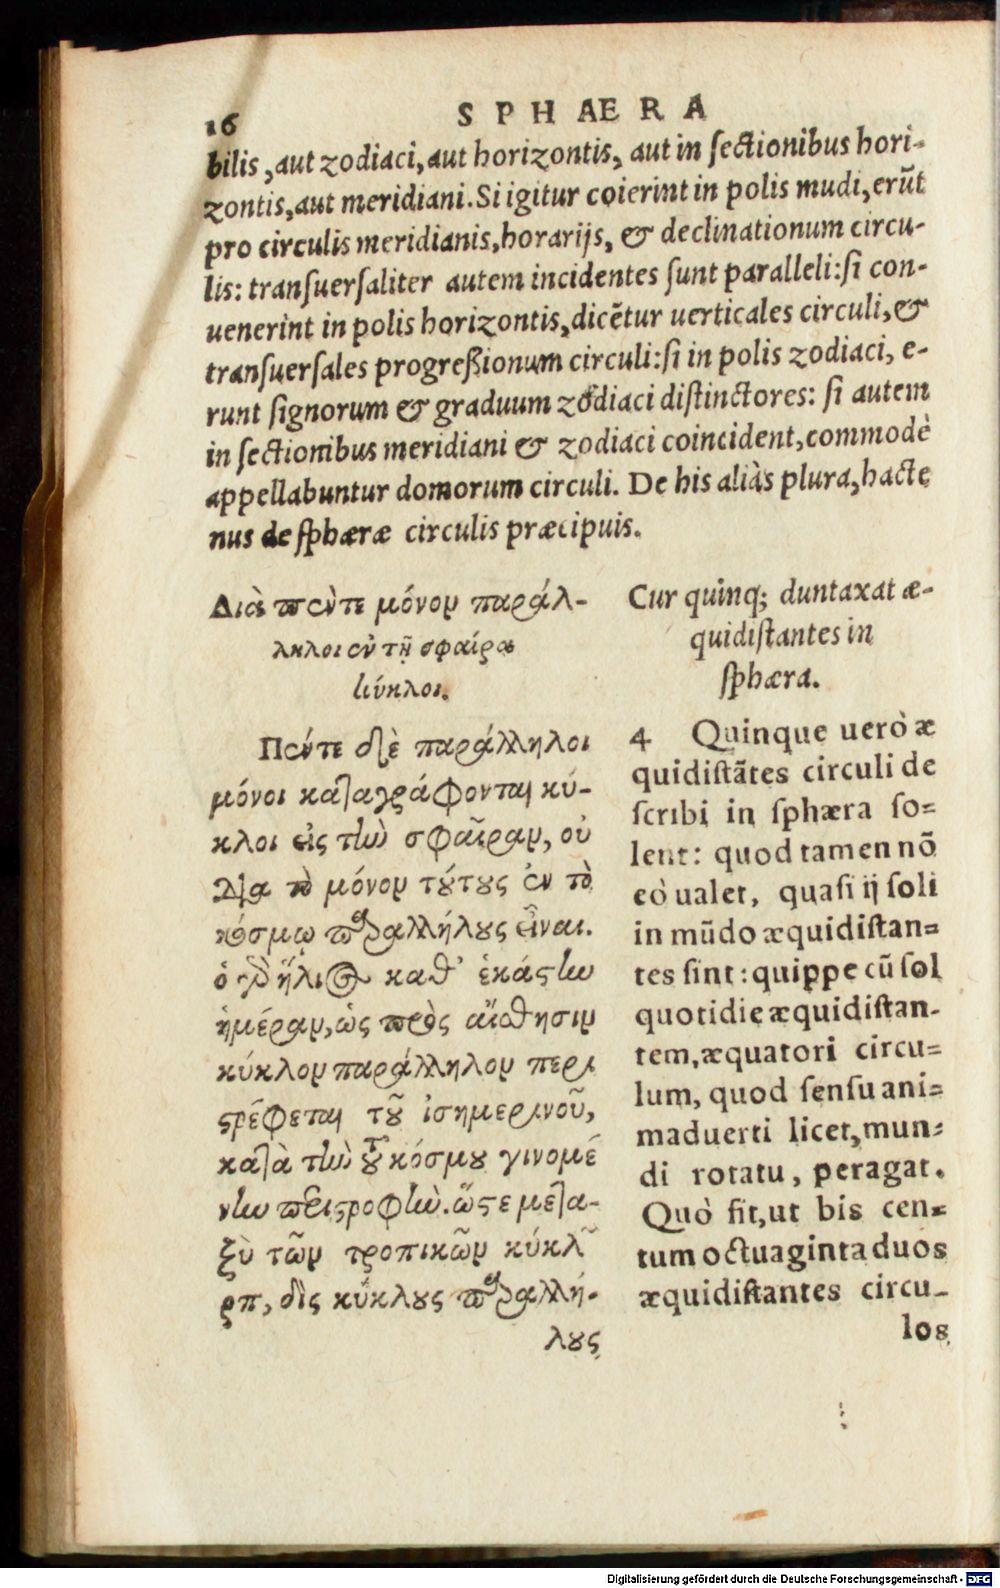 16
SPHAERA
bilis, aut zodiaci, aut horizontis, aut in ſectionibus hori-
zontis, aut meridiani. Si igitur coierint in polis mūdi, erūt
pro circulis meridianis, horarijs, & declinationum circu-
lis: tranſuerſaliter autem incidentes ſunt paralleli: ſi con-
uenerint in polis horizontis, dicētur uerticales circuli, &
tranſuerſales progreßionum circuli: ſi in polis zodiaci, e-
runt ſignorum & graduum zodiaci diſtinctores: ſi autem
in ſectionibus meridiani & zodiaci coincident, commodè
appellabuntur domorum circuli. De his aliàs plura, hacte
nus de ſphæræ circulis præcipuis.
Διὰ πέντε μόνον παράλ-
ληλοι ἐν τῇ σφαίρᾳ
κύκλοι.
Πέντε δὲ παράλληλοι
μόνοι καταγράφονται κύ-
κλοι εἰς τὴν σφαῖραν, οὐ
διὰ τὸ μόνον τούτους ἐν τῷ
κόσμῳ παραλλήλους εἶναι.
ὁ γὰρ ἥλιος καθ' ἑκάστην
ἡμέραν, ὡς πρὸς αἴσθησιν
κύκλον παράλληλον περι
στρέφεται τοῦ ἰσημερινοῦ,
κατὰ τὴν τοῦ κόσμου γινομέ
νην περιστροφὴν. ὥστε μετα-
ξὺ τῶν τροπικῶν κύκλ῀
ρπ, δὶς κύκλους παραλλή-
λους
Cur quinq; duntaxat æ-
quidiſtantes in
ſphæra.
4 Quinque uerò æ
quidiſtātes circuli de
ſcribi in ſphæra ſo-
lent: quod tamen nō
eò ualet, quaſi ij ſoli
in mūdo æquidiſtan-
tes ſint: quippe cū ſol
quotidie æquidiſtan-
tem, æquatori circu-
lum, quod ſenſu ani-
maduerti licet, mun-
di rotatu, peragat.
Quò fit, ut bis cen-
tum octuaginta duos
æquidiſtantes circu-
los
Digitalisierung gefördert durch die Deutsche Forschungsgemeinschaft - DFG